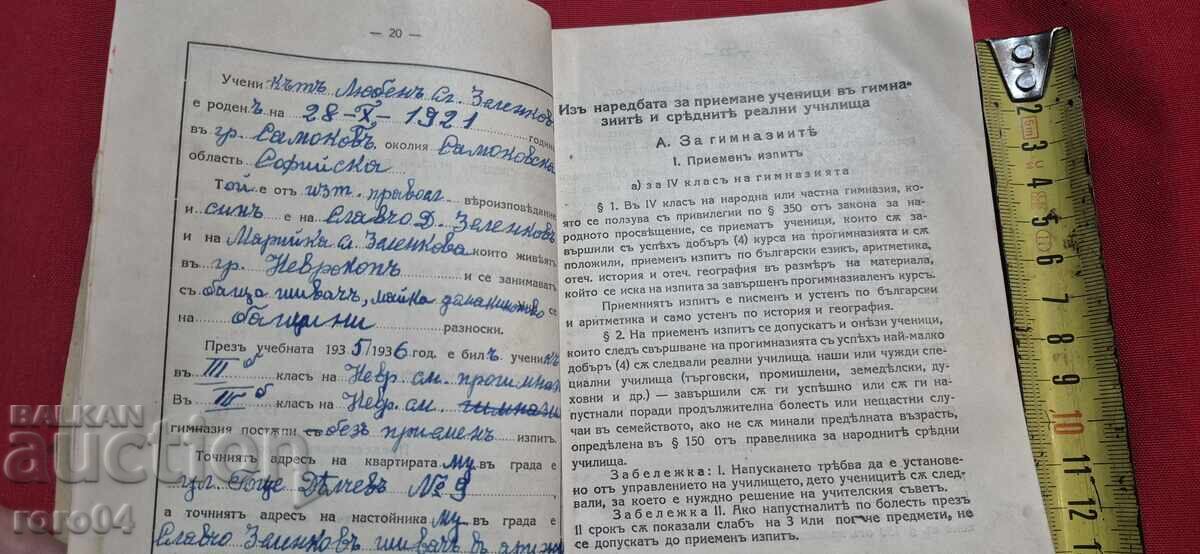 — 20 —
Учени къ тъ Любенъ Сл. Зеленковъ
е роденъ на 28-X-1921 година
въ гр. Самоковъ, околия Самоковска
область Софийска
Той е отъ изт. правосл. вѣроизповѣдание
и синъ е на Славчо Д. Зеленковъ
и на Марийка Сл. Зеленкова които живѣятъ
въ гр. Неврокопъ и се занимаватъ
съ баща шивачъ, майка домакинство се
на бащини разноски.
Презъ учебната 1935/1936 год. е билъ ученикъ
въ III б класъ на Невр. см. прогимназ
Въ класъ на Невр. см.
гимназия постѫпи безъ приеменъ изпитъ.
Точниятъ адресъ на квартирата му въ града е
ул. Гоце Дѣлчевъ № 9
а точниятъ адресъ на настойника му въ града е
Славчо Зеленковъ шивачъ в
Изъ наредбата за приемане ученици въ гимна-
зиитѣ и срѣднитѣ реални училища
А. За гимназиитѣ
I. Приеменъ изпитъ
а) за IV класъ на гимназията
§ 1. Въ IV класъ на народна или частна гимназия, ко-
ято се ползува съ привилегии по § 350 отъ закона за на-
родното просвѣщение, се приематъ ученици, които сѫ за-
вършили съ успѣхъ добъръ (4) курса на прогимназията и сѫ
положили, приеменъ изпитъ по български езикъ, аритметика,
отеч. история и отеч. география въ размѣръ на материала,
който се иска на изпита за завършенъ прогимназиаленъ курсъ.
Приемниятъ изпитъ е писменъ и устенъ по български
и аритметика и само устенъ по история и география.
§ 2. На приеменъ изпитъ се допускатъ и онѣзи ученици,
които следъ свършване на прогимназията съ успѣхъ най-малко
добъръ (4) сѫ следвали реални училища. наши или чужди спе-
циални училища (търговски, промишлени, земедѣлски, ду-
ховни и др.) — завършили сѫ ги успѣшно или сѫ ги на-
пустнали поради продължителна болесть или нещастни слу-
чаи въ семейството, ако не сѫ минали предѣлната възрасть,
опредѣлена въ § 150 отъ правелника за народнитѣ срѣдни
училища.
Забележка: I. Напускането трѣбва да е установе-
но отъ управлението на училището, дето ученицитѣ сѫ след-
вали, за което е нуждно решение на учителския съветъ.
Забележка II. Ако напусталитѣ по болесть презъ
II срокъ сѫ показали слабъ на 3 или повече предмети, не
се допускатъ до приеменъ изпитъ.
2
3
4
5
6
7
8
9
10
11
12
5m
BALKAN
auction
roro04